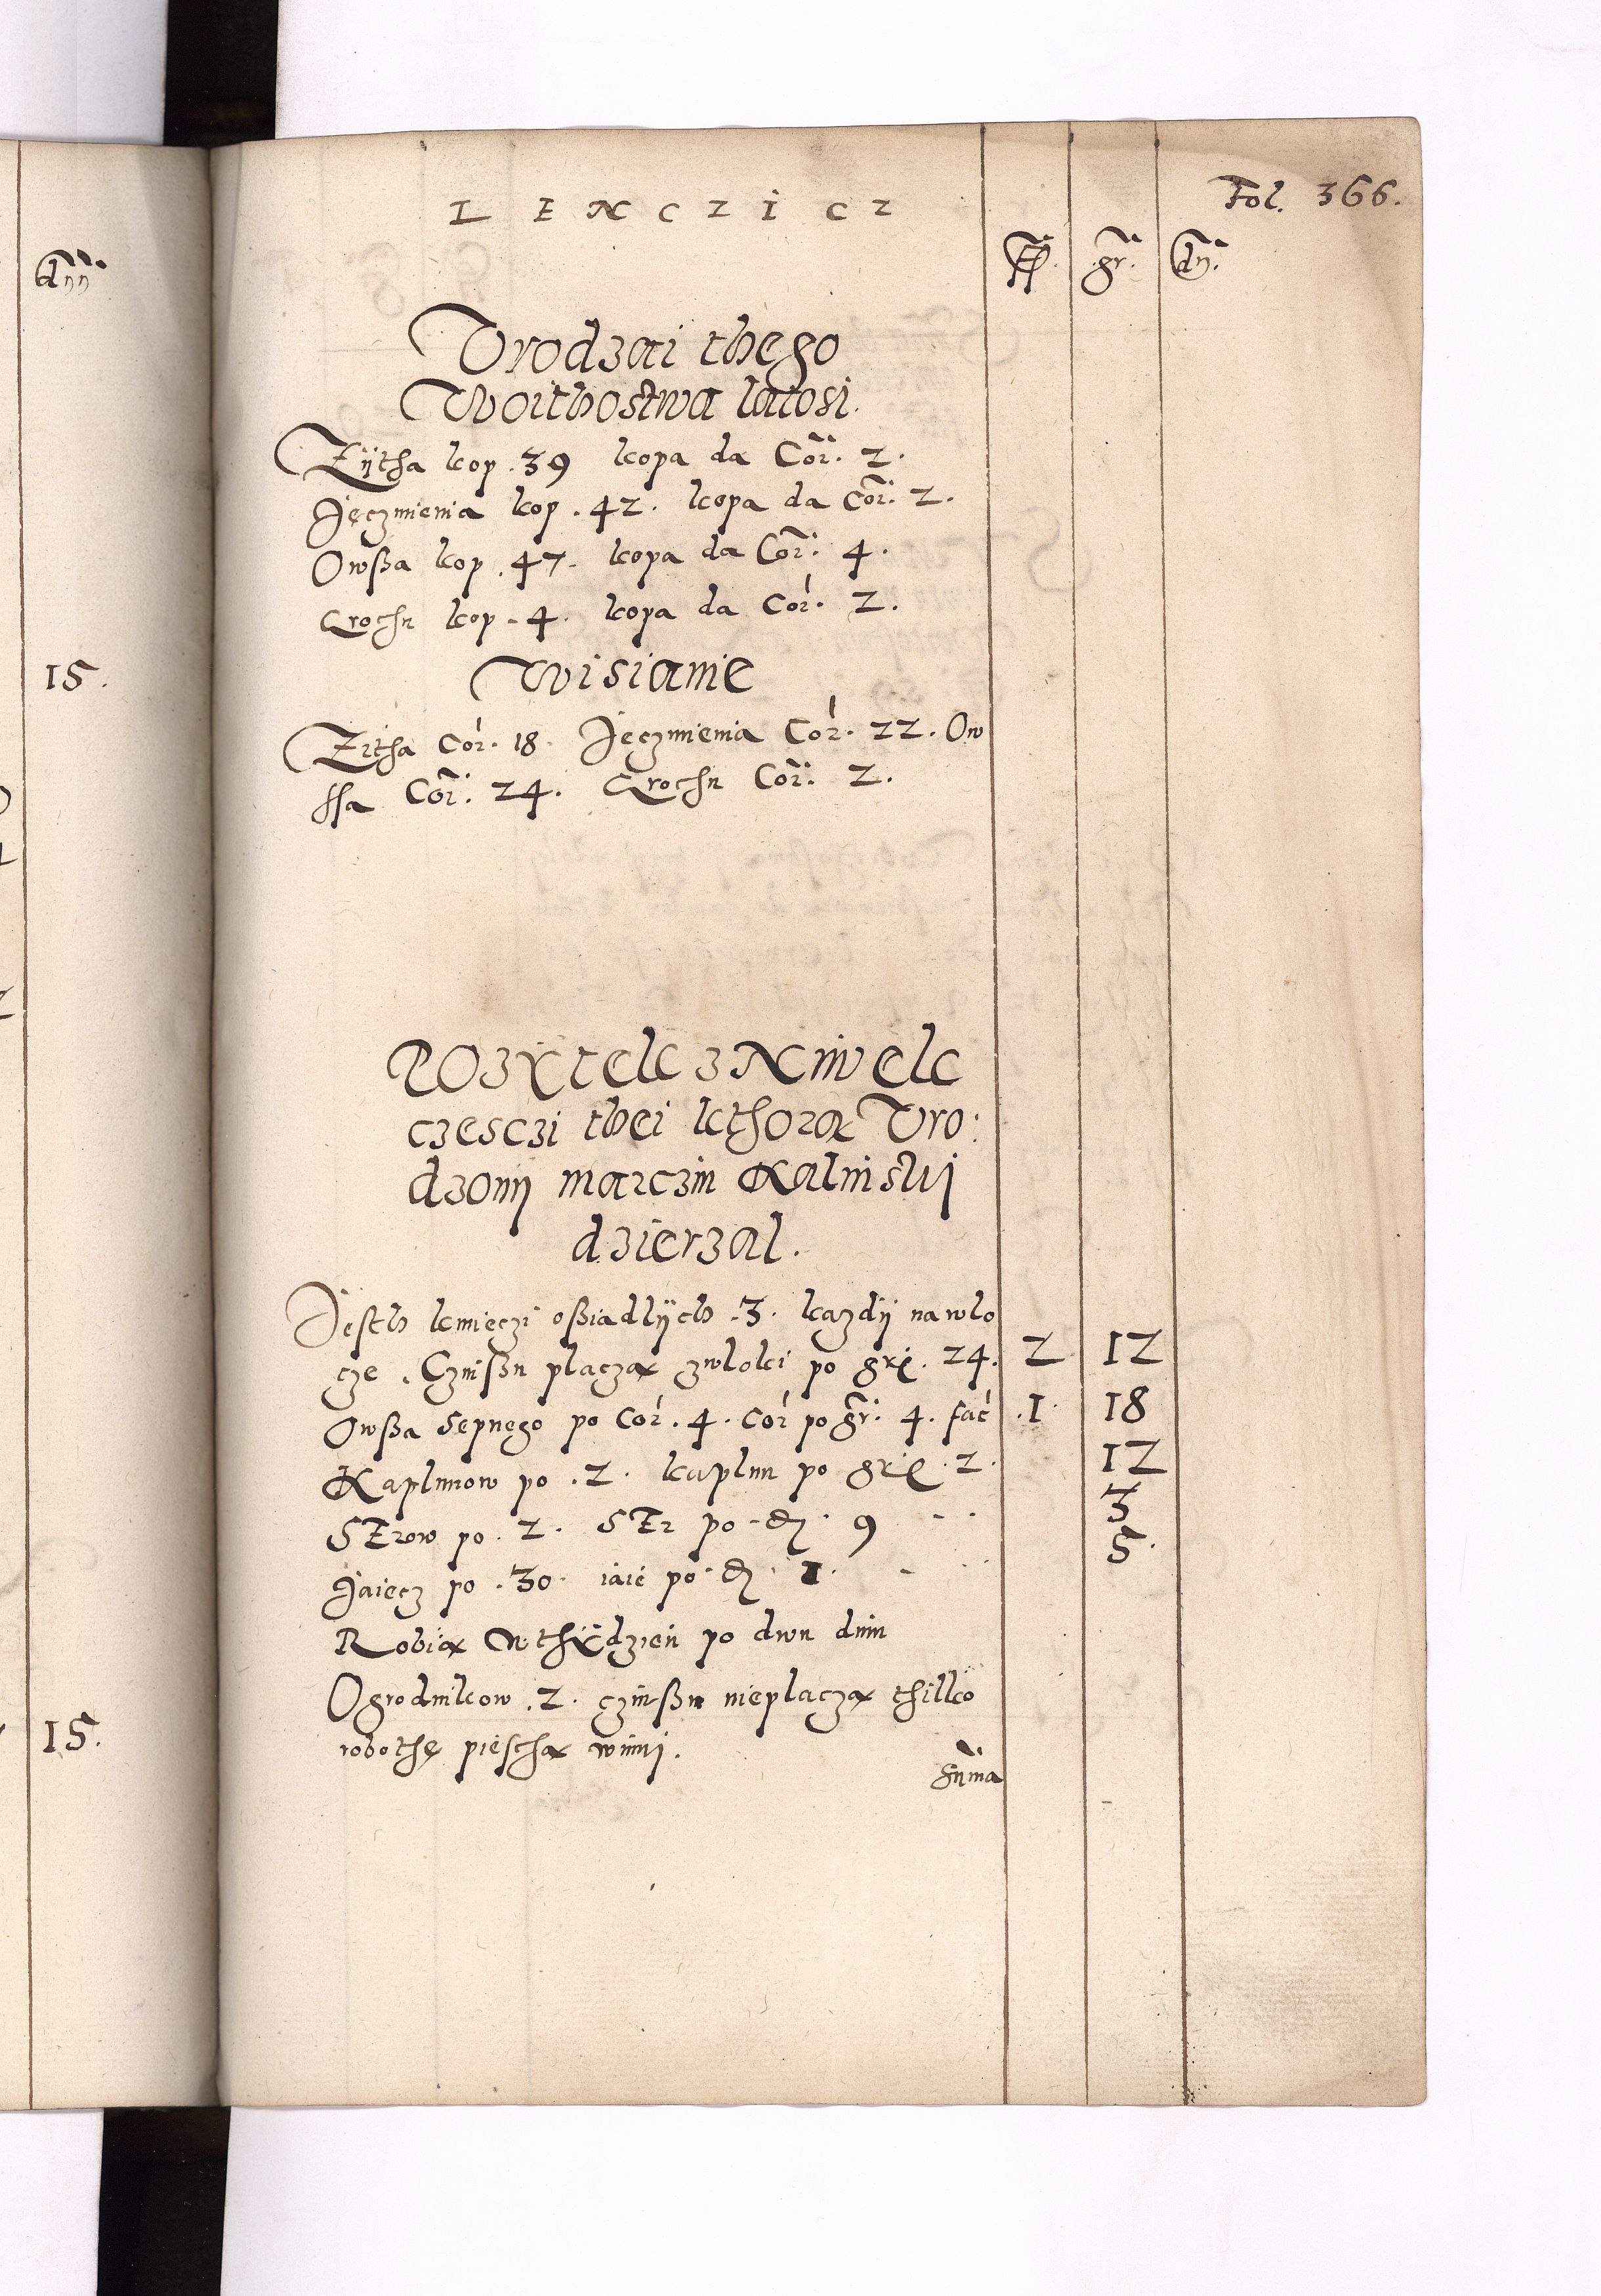 Fol. 366.
LENCZICZ
fl. gr. dn.
Urodzai thego
Woithostwa latosi.
Zÿtha kop. 39 kopa da Cor. 2.
Jęczmienia kop. 42. kopa da Cor. 2.
Owßa kop. 47. kopa da Cor. 4.
Grochu kop. 4. kopa da Cor. 2.
Wisianie
Zitha Cor. 18. Jęczmienia Cor. 22. Ow
ssa Cor. 24. Grochu Cor. 2.
Pozÿtek z Niwek
częsczi thei kthorą Uro:
dzonÿ Marczin Kalinski
dzierzal.
Jesth kmieczi oßiadlÿch. 3. kazdÿ na wlo
cze. Czinßu placzą zwloki po gr. 24. 2 12
Owßa Sepnego po Cor. 4. Cor po gr. 4. fac 1. 18
Kaplunow po. 2. kaplun po gr. 2. 12
SErow po. 2. SEr po d. 9 3
Jaiecz po. 30. iaie po d. 1. 5.
Robią w thÿdzien po dwu dniu
Ogrodnikow. 2. czinßu nieplaczą thilko
robothę pieschą winni.
Summa
dnn
15.
15.